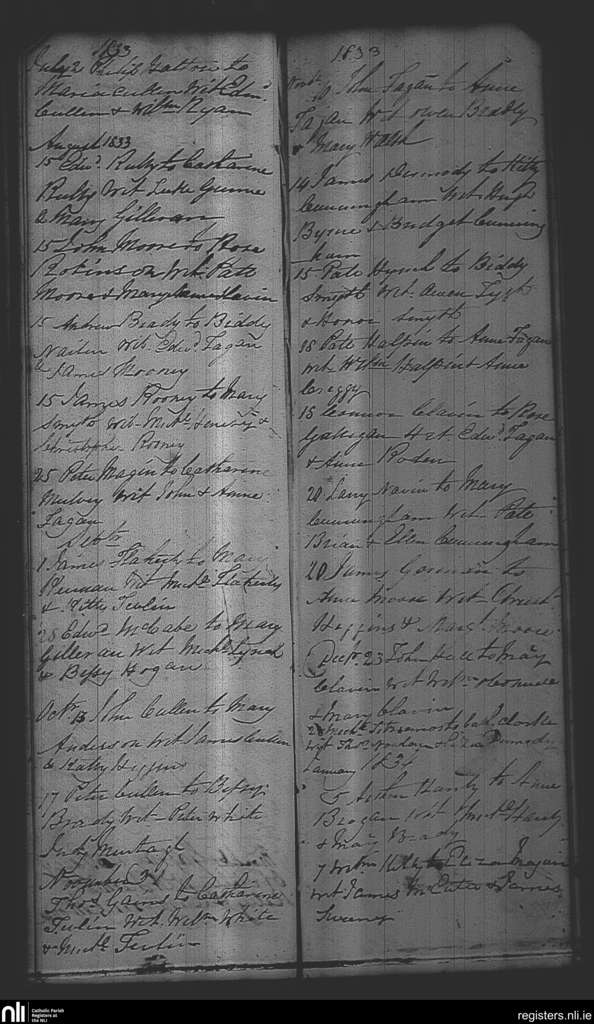 1833
July 2 Philip Gaffrie to
Maria Cullen Wit Edwd
Cullen & Willm Ryan
August 1833
15 Edwd Reilly to Catharine
Reilly Wit Luke Gunne
& Mary Gilleran
15 John Moore to Rose
Robinson Wit Patt
Moore & Mary Clavin
15 Andrew Brady to Biddy
wit Edwd Fagan
& James Rooney
15 James Rooney to Mary
Smyth wit Michl &
Christopher Rooney
25 Peter Magin to Catharine
Mulvey Wit John & Anne
Fagan
Septr
1 James Flaherty to Mary
Brennan Wit Michl Flaherty
& Kitty Teelin
28 Edwd McCabe to Mary
Gilleran Wit Michl Lynch
& Bessy Hogan
Octr 13 John Cullen to Mary
Anderson Wit James Cullen
& Kathy Higgins
17 Peter Cullen to Bessy
Brady Wit Peter White
Judy Murtagh
November
Thos Gavns to Catharine
Teelin Wit Willm White
& Michl Teelin
1833
Novr 10 John Fagan to Anne
Fagan Wit Owen Bradly
& Mary Walsh
14 James Dermody to Kitty
Cunningham Wit Hugh
Byrne & Bridget Cunning
ham
15 Patt Hynds to Biddy
Smyth Wit Owen
& Honor Smyth
18 Patt Halpin to Anne Fagan
Wit Willm Halpin & Anne
Creggy
18 Connor Clavin to Rose
Galligan Wit Edwd Fagan
& Anne Roden
20 Lany Navin to Mary
Cunningham Wit Patt
Brian & Ellen Cunningham
20 James Gorman to
Anne Moore Wit Christ
Higgins & Margt Moore
Decr 23 John Hall to Mary
Clavin Wit Willm
& Mary Clavin
2 Michl to Cath Clarke
Wit Thos & Eliza Dermody
January 1834
5 Hardy to Anne
Brogan Wit Michl Hardy
& Mary Brady
7 Willm to Eliza Magan
Wit James McEntee & James
Sweeney
nli
Catholic Parish
Registers at
the NLI
registers.nli.ie